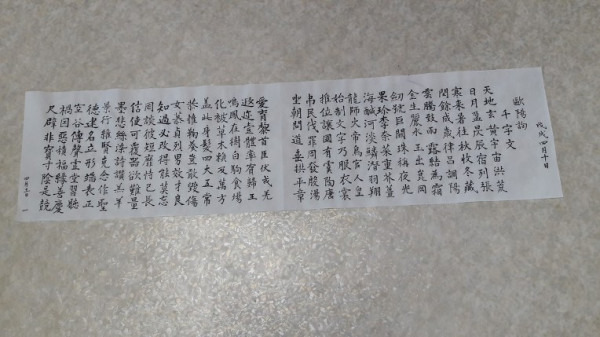 戊戌四月十日
歐陽詢
千字文
天地玄黃宇宙洪荒
日月盈昃辰宿列張
寒來暑往秋收冬藏
閏餘成歲律呂調陽
雲騰致雨露結為霜
金生麗水玉出崑岡
劍號巨闕珠稱夜光
果珍李柰菜重芥薑
海鹹河淡鱗潛羽翔
龍師火帝鳥官人皇
始制文字乃服衣裳
推位讓國有虞陶唐
弔民伐罪周發殷湯
坐朝問道垂拱平章
愛育黎首臣伏戎羌
遐迩壹體率賓歸王
鳴鳳在樹白駒食場
化被草木賴及萬方
蓋此身髮四大五常
恭惟鞠養豈敢毀傷
女慕貞烈男效才良
知過必改得能莫忘
罔談彼短靡恃己長
信使可覆器欲難量
墨悲絲染詩讚羔羊
景行維賢克念作聖
德建名立形端表正
空谷傳聲虛堂習聽
禍因惡積福緣善慶
尺璧非寶寸陰是競